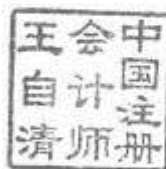 中国注册
会计师
王自清